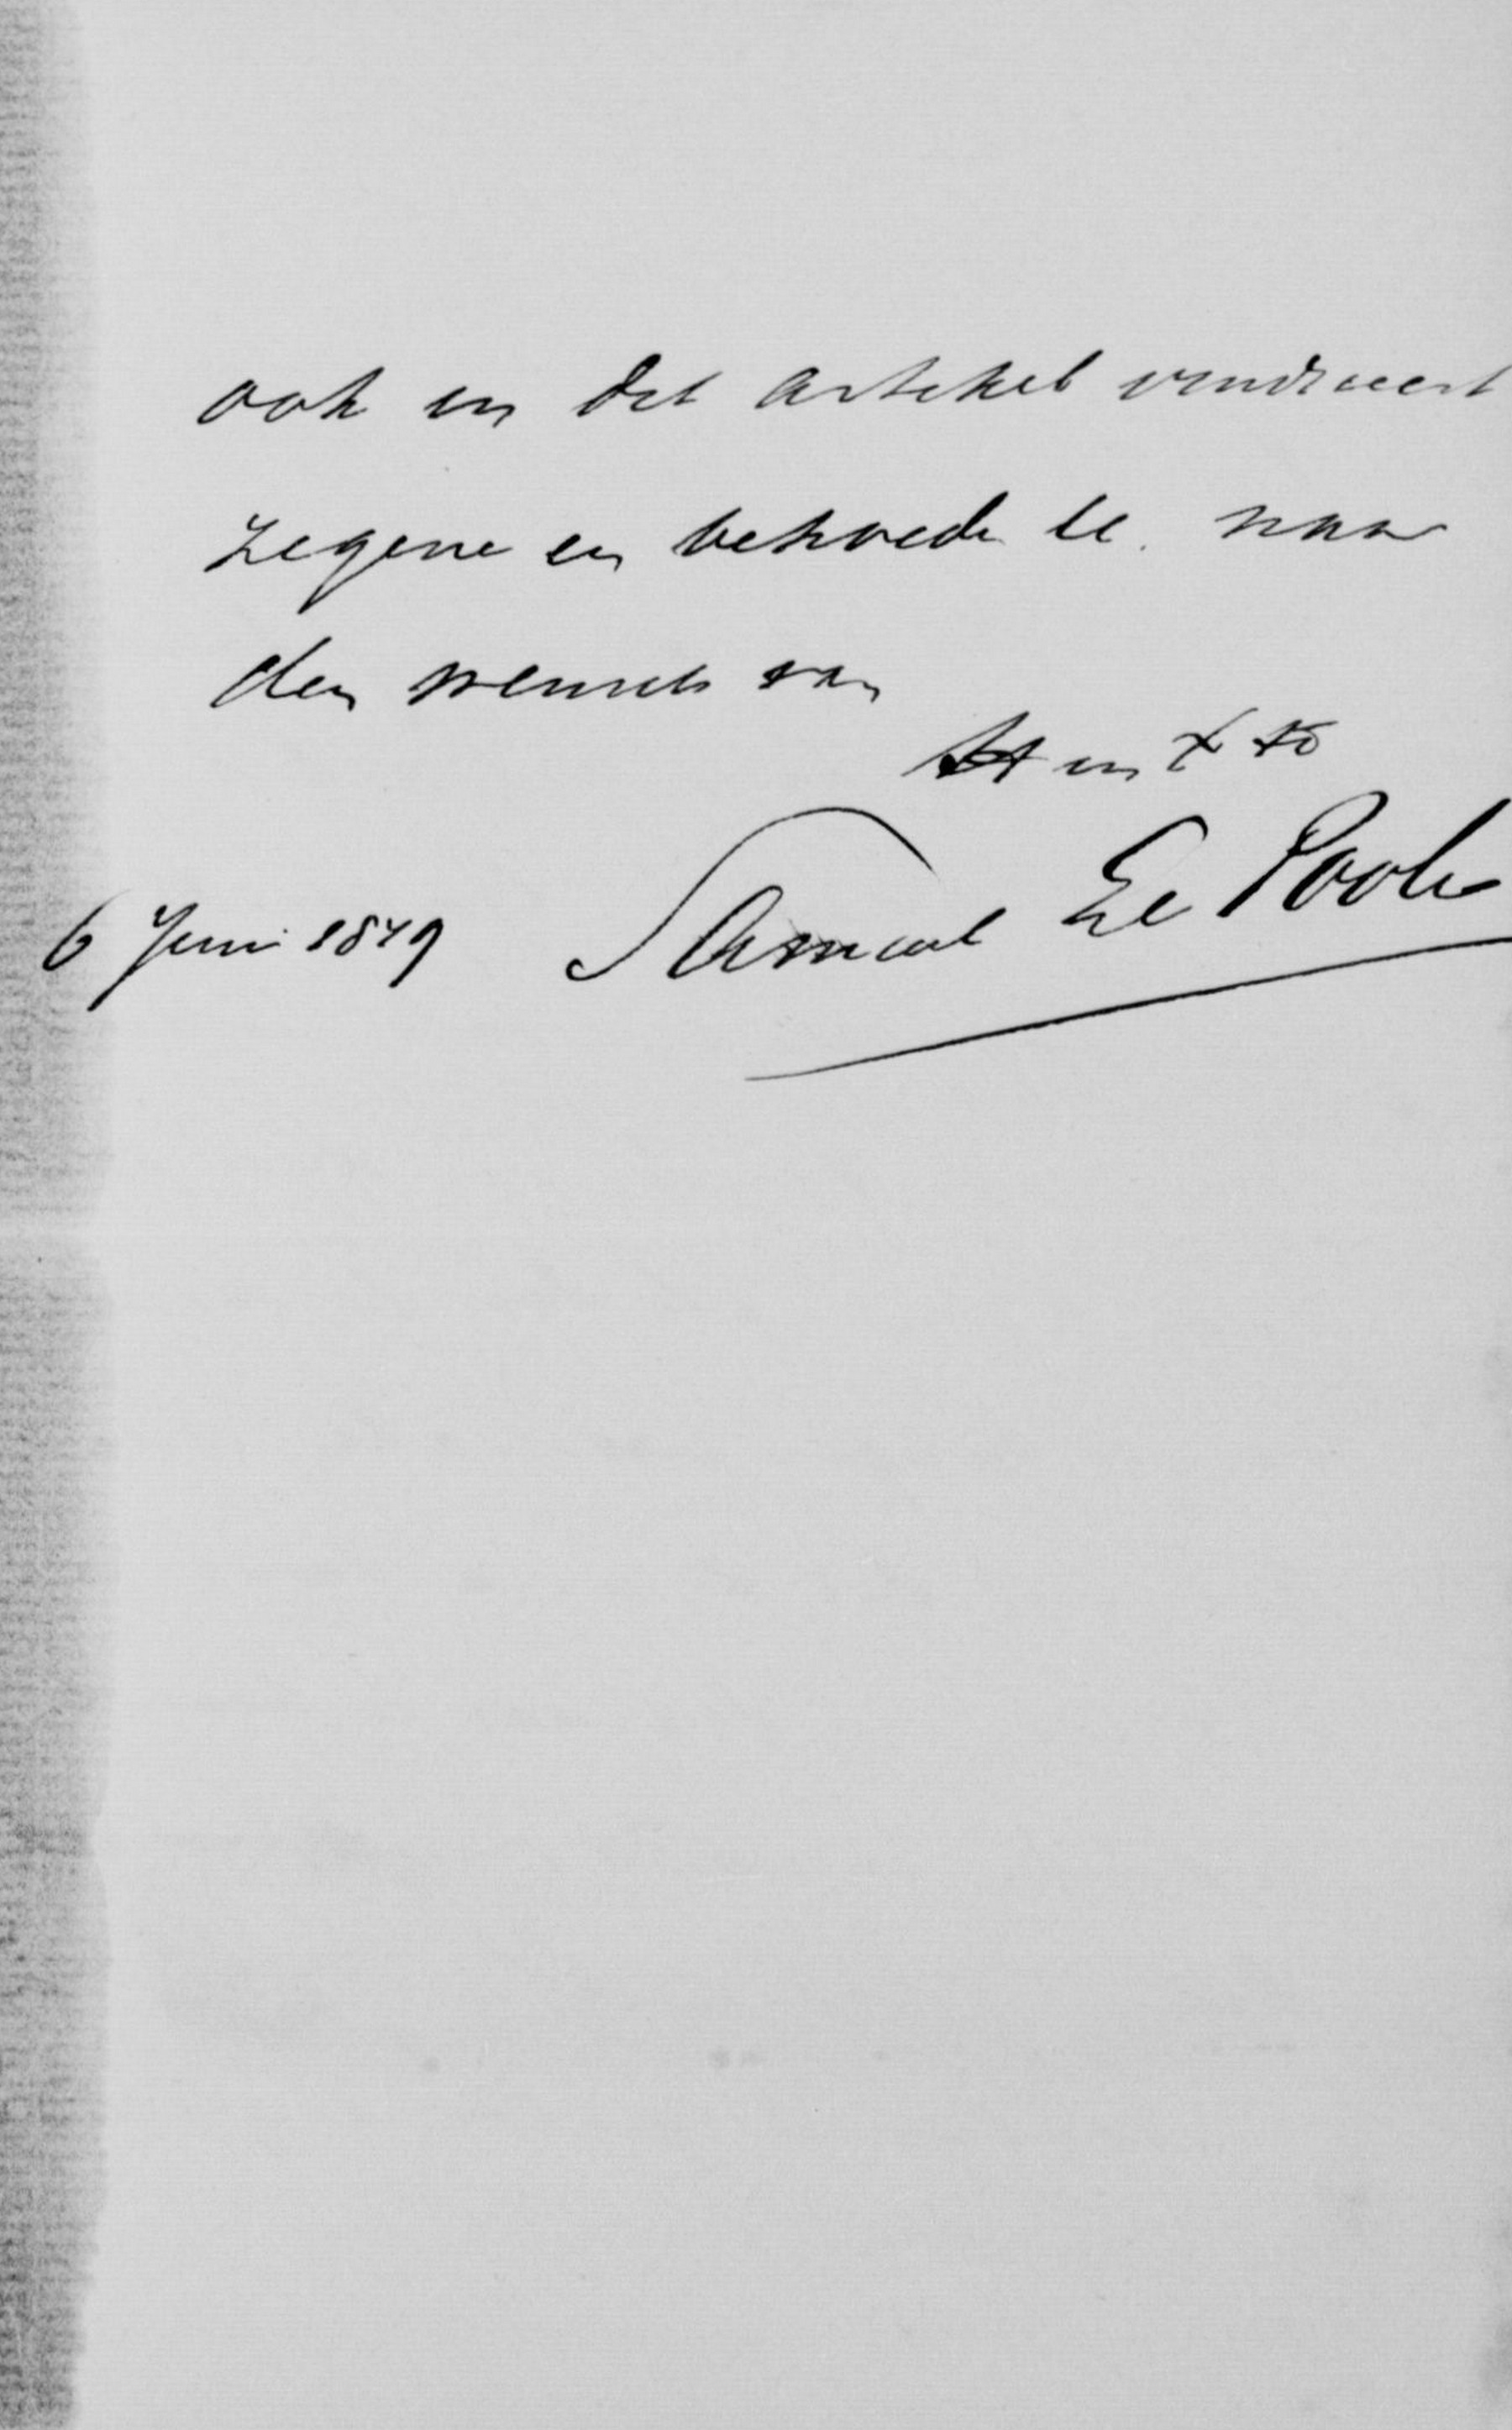 ook in dit artikel
zegene en behoede U. naar
den wensch van
in
6 Juni 1879 Samuel Le Poole